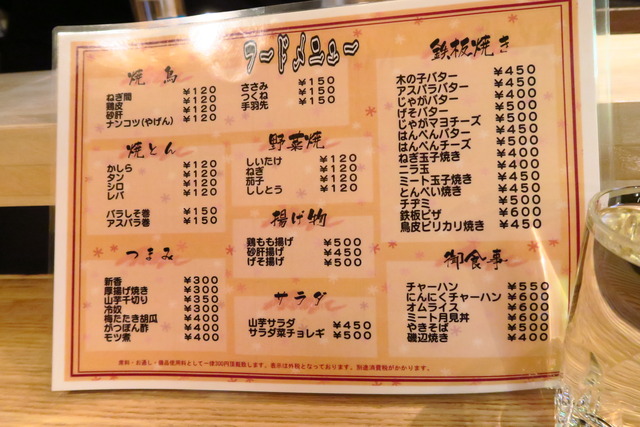 フードメニュー
焼鳥
ねぎ間 ¥120
鶏皮 ¥120
砂肝 ¥120
ナンコツ(やげん) ¥120
ささみ ¥150
つくね ¥150
手羽先 ¥150
焼とん
かしら ¥120
タン ¥120
シロ ¥120
レバ ¥120
バラしそ巻 ¥150
アスパラ巻 ¥150
つまみ
新香 ¥300
厚揚げ焼き ¥300
山芋千切り ¥350
冷奴 ¥300
梅たたき胡瓜 ¥400
がつぽん酢 ¥400
モツ煮 ¥400
野菜焼
しいたけ ¥120
ねぎ ¥120
茄子 ¥120
ししとう ¥120
揚げ物
鶏もも揚げ ¥500
砂肝揚げ ¥450
げそ揚げ ¥500
サラダ
山芋サラダ ¥450
サラダ菜チョレギ ¥500
鉄板焼き
木の子バター ¥450
アスパラバター ¥450
じゃがバター ¥400
げそバター ¥450
じゃがマヨチーズ ¥500
はんぺんバター ¥400
はんぺんチーズ ¥450
ねぎ玉子焼き ¥400
ニラ玉 ¥400
ミート玉子焼き ¥450
とんぺい焼き ¥450
チヂミ ¥500
鉄板ピザ ¥600
鳥皮ピリカリ焼き ¥450
御食事
チャーハン ¥550
にんにくチャーハン ¥600
オムライス ¥600
ミート月見丼 ¥600
やきそば ¥500
磯辺焼き ¥400
席料・お通し・備品使用料として一律300円頂戴致します。表示は外税となっております。別途消費税がかかります。